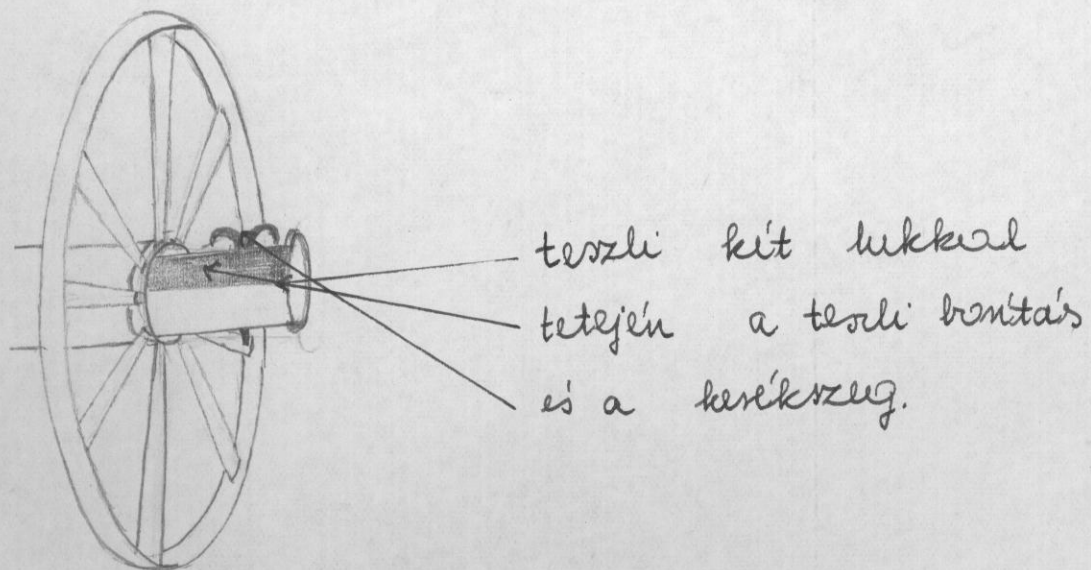 teszli két lukkal
tetején a teszli borítás
és a kerékszeg.